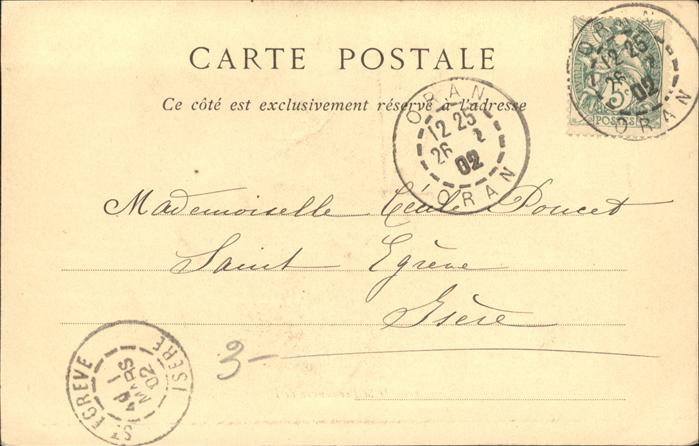 CARTE POSTALE
Ce côté est exclusivement réservé à l'adresse
ORAN
12 25
26 2
02
ORAN
ORAN
12 25
26 2
02
ORAN
5c
POSTES
Mademoiselle Cécile Poncet
Saint Egrève
Isère
3-
ST EGREVE
4
1
MARS
02
ISERE